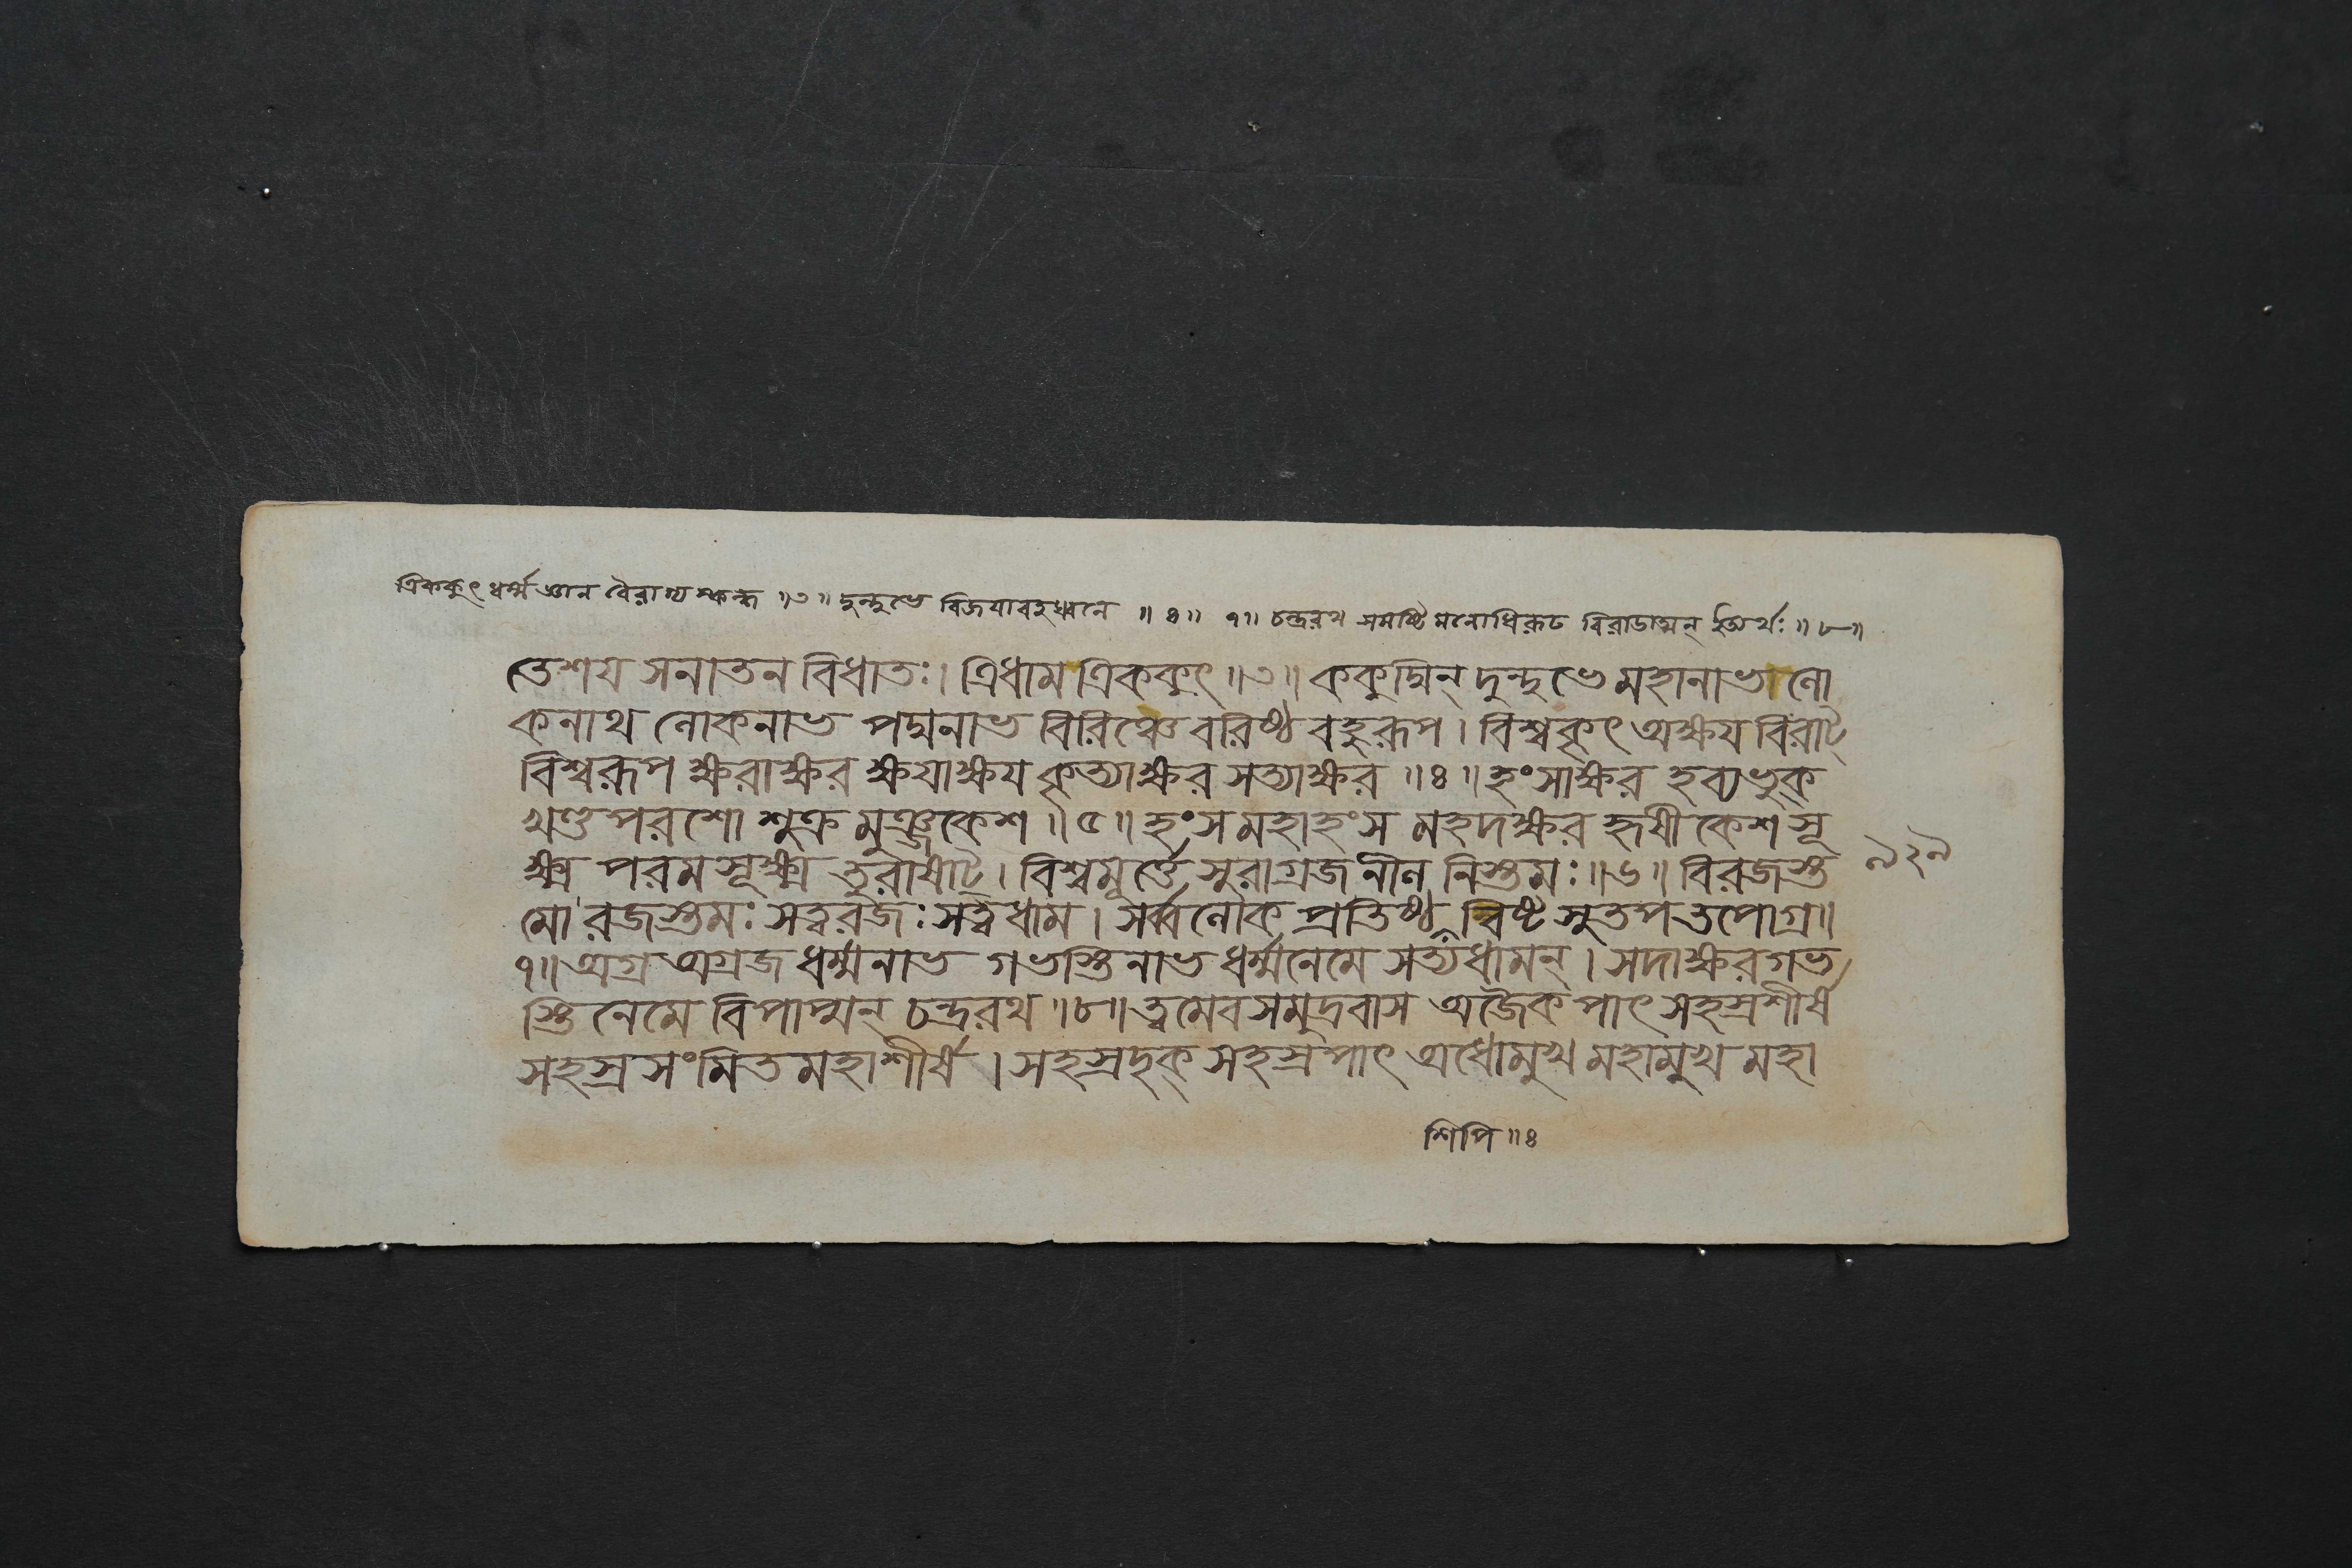 ত্রিককুৎ ধর্ম্মজ্ঞান বৈরাগ্য স্কন্ধ ॥৩॥ দুন্দুভে বিজয়াবহধ্বনে ॥৪॥ ৭॥ চন্দ্ররথ সমষ্টি মনোধিরূঢ বিরাডাত্মন্ অর্থঃ॥৮॥
তেশয সনাতন বিধাতঃ। ত্রিধাম ত্রিককুৎ ॥৩॥ ককুদ্মিন্ দুন্দুভে মহানাভালো
কনাথ লোকনাভ পদ্মনাভ বিরিঞ্চে বরিষ্ঠ বহুরূপ। বিশ্বকৃৎ অক্ষয বিরাট্
বিশ্বরূপ ক্ষরাক্ষর ক্ষযাক্ষয কৃত্যাক্ষর সত্যাক্ষর ॥৪॥ হংসাক্ষর হব্যভুক্
খণ্ডপরশো শুক্র মুঞ্জকেশ॥৫॥ হংস মহাহংস মহদক্ষর হৃষীকেশ সূ
ক্ষ্ম পরমসূক্ষ্ম তুরাষাট্। বিশ্বমূর্ত্তে সুরাগ্রজ নীল নিস্তমঃ॥৬॥ বিরজস্ত
মো রজস্তমঃ সত্ত্বরজঃ সত্ত্বধাম। সর্ব্বলোক প্রতিষ্ঠ শিপিবিষ্ট সুতপ তপোগ্র॥
৭॥ অগ্র অগ্রজ ধর্ম্মনাভ গভস্তিনাভ ধর্ম্মনেমে সত্যধামন্। সদাক্ষরগভ
স্তিনেমে বিপাপ্মন্ চন্দ্ররথ॥৮॥ ত্বমেব সমুদ্রবাস অজৈকপাৎ সহস্রশীর্ষ
সহস্র সংমিত মহাশীর্ষ। সহস্রদৃক্ সহস্রপাৎ অধোমুখ মহামুখ মহা
শিপি॥৪